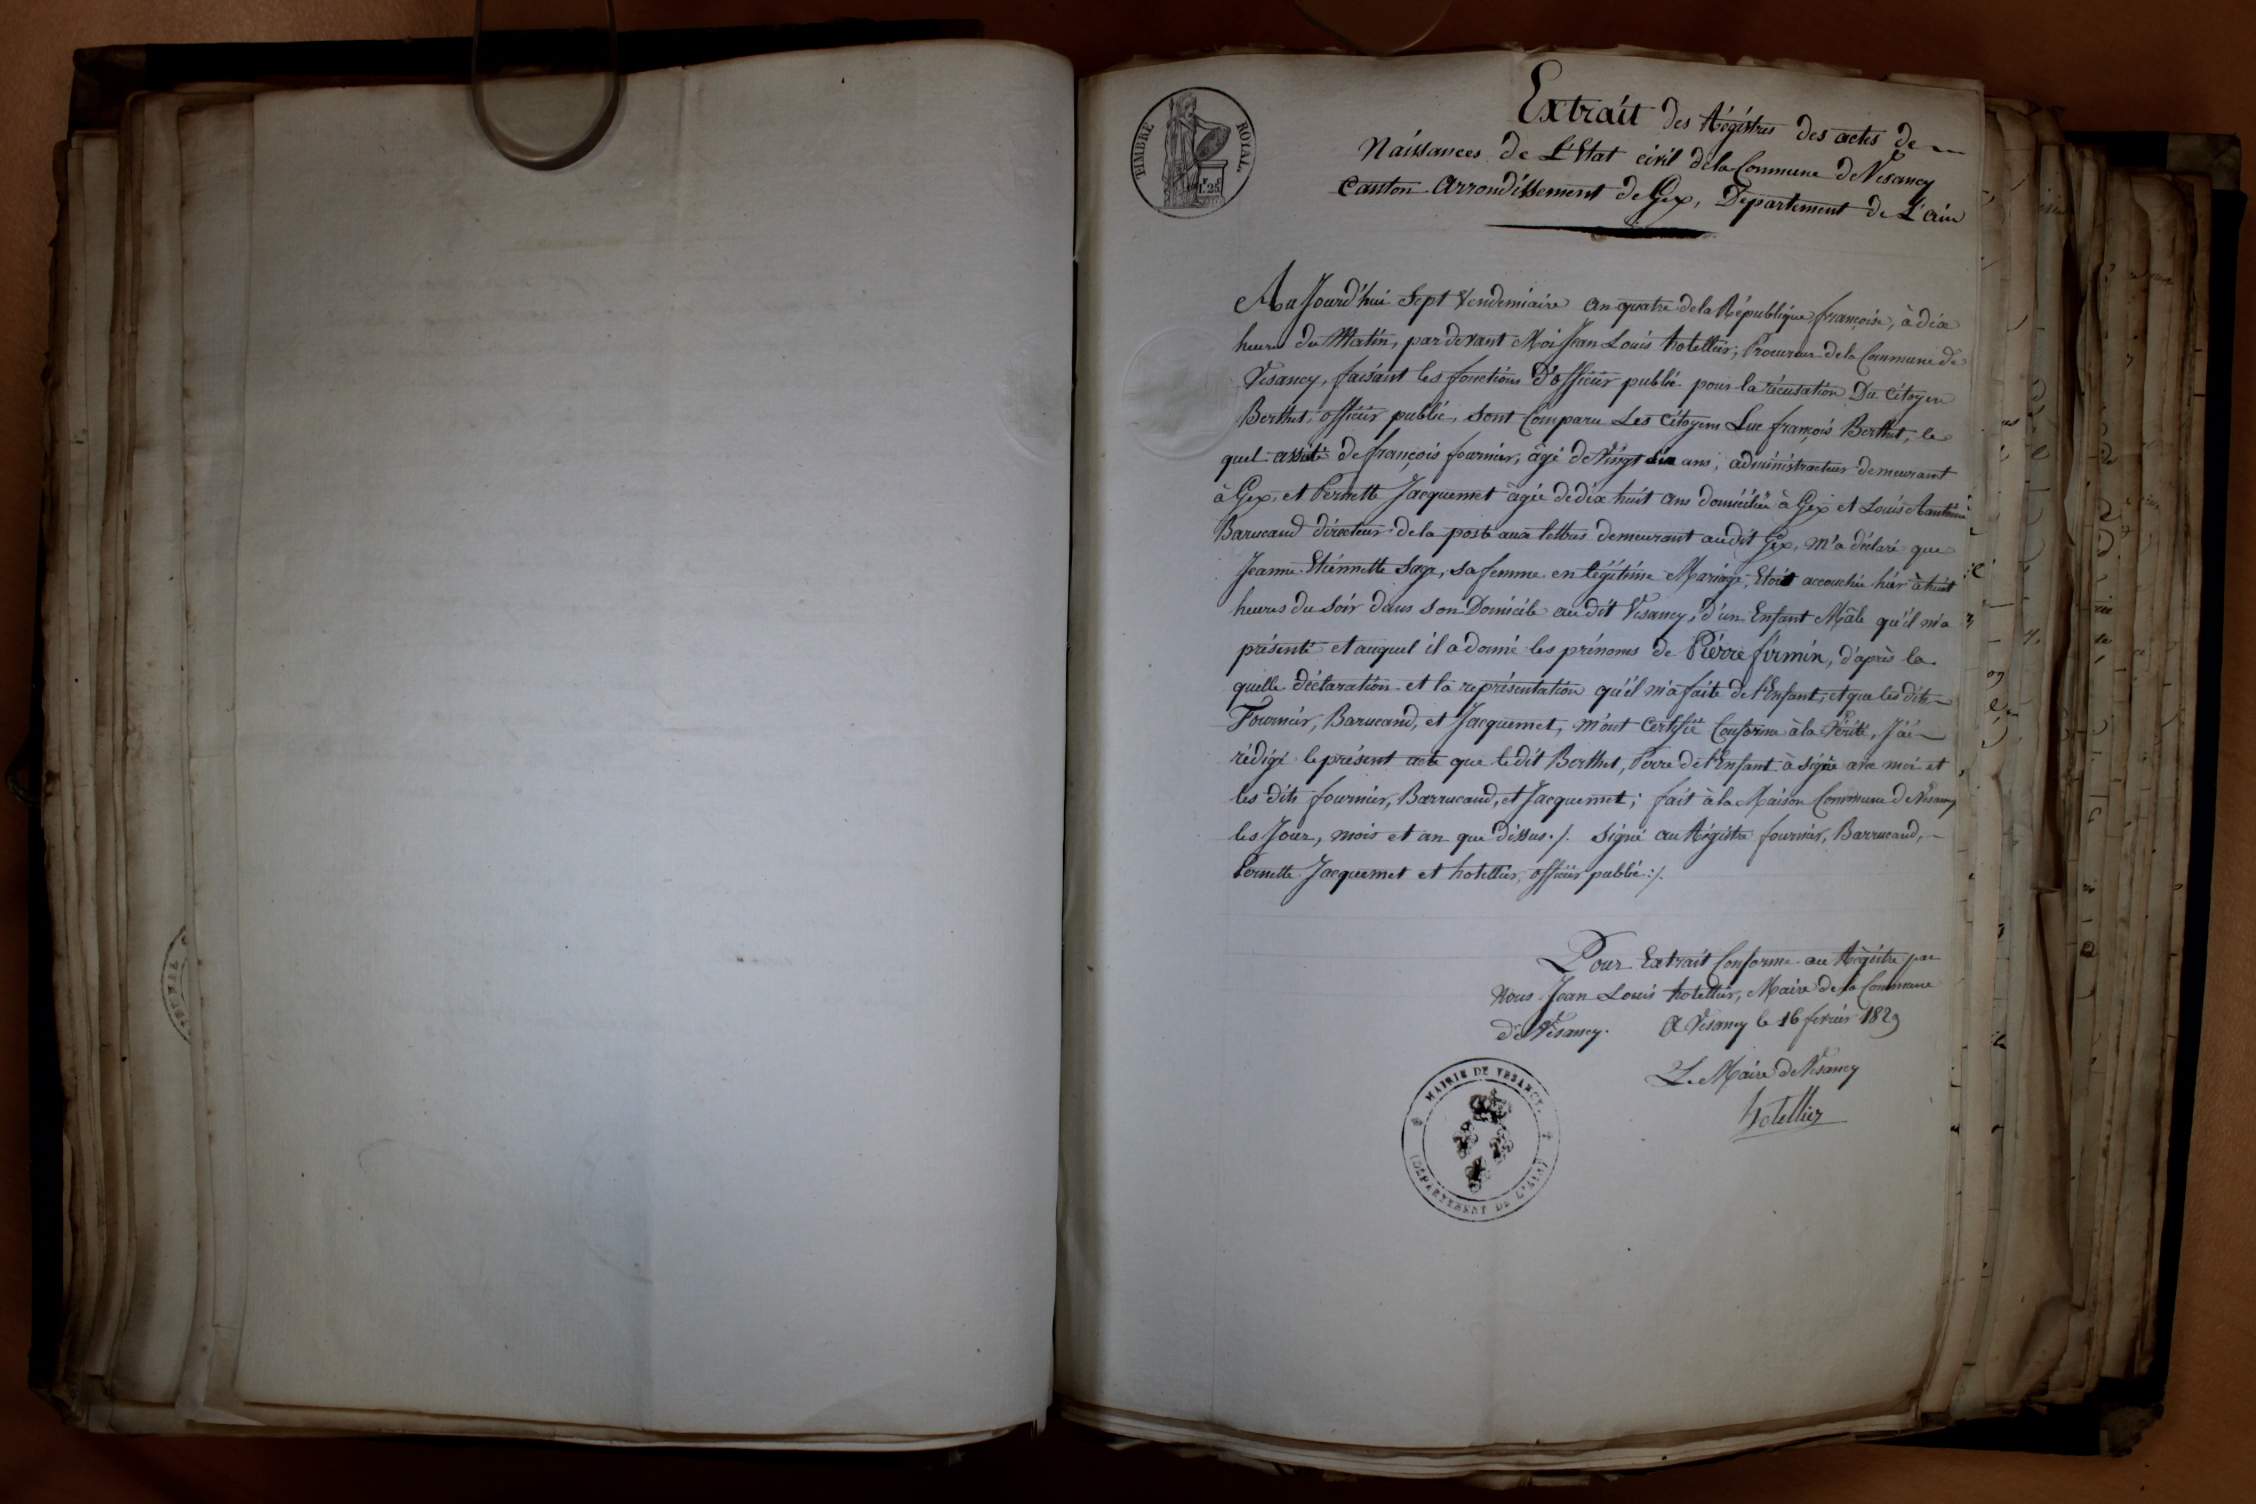 TIMBRE ROYAL
1f. 25c
Extrait des Régistres des actes de
Naissances de L'Etat civil de la Commune de Vesancy
Canton Arrondissement de Gex, Departement de L'ain
Au Jourd'hui Sept Vendemiaire an quatre de la République françoise, à dix
heures du Matin, pardevant Moi Jean Louis hotellier, Procureur de la Commune de
Vesancy, faisant les fonctions d'officier public pour la récusation Du Citoyen
Berthet, officier public, sont Comparu Les Citoyens Luc françois Berthet, le
quel assisté de françois fournier, âgé de Vingt six ans, administrateur demeurant
à Gex, et Pernette Jacquemet âgée de dix huit ans domiciliée à Gex et Louis Antoine
Barucand directeur de la poste aux lettres demeurant audit Gex, m'a déclaré que
Jeanne Etiennette Sage, sa femme en légitime Mariage, Etoit accouchée hier à huit
heures du soir dans son Domicile au dit Vesancy, d'un Enfant Mâle qu'il m'a
présenté et auquel il a donné les prénoms de Piérre firmin, d'après la
quelle déclaration et la représentation qu'il m'a faite de l'Enfant, et que les dits
Fournier, Barucand, et Jacquemet, m'ont Certifié Conforme à la Vérité, J'ai
rédigé le présent acte que le dit Berthet, Perre de l'Enfant à signé avec moi et
les dits fournier, Barrucand, et Jacquemet; fait à la Maison Commune de Vesancy
les Jour, mois et an que dessus ./. Signé au Régistre fournier, Barrucand,
Pernette Jacquemet et hotellier, officier public :/.
Pour Extrait Conforme au Régistre par
Nous Jean Louis hotellier, Maire de la Commune
de Vesancy. A Vesancy le 16 fevrier 1829
Le Maire de Vesancy
hotellier
MAIRIE DE VESANCY.
(DÉPARTEMENT DE L'AIN)